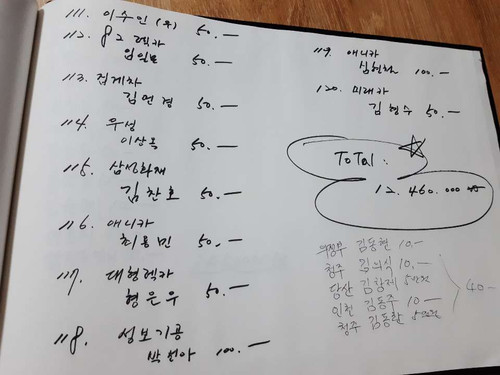 111. 이수인 (우) 50.—
112. 82 렉카
임인보 50.—
113. 집게차
김언경 50.—
114. 우성
이상옥 50.—
115. 삼성화재
김찬호 50.—
116. 애니카
최용민 50.—
117. 대형렉카
형은우 50.—
118. 성보기공
박천아 100.—
119. 애니카
심현차 100.—
120. 미래카
김형수 50.—
ToTal :
12.460.000
의정부 김동현 10.—
청주 김의식 10.—
당산 김창제
인천 김동주 10—
청주 김동활
40—